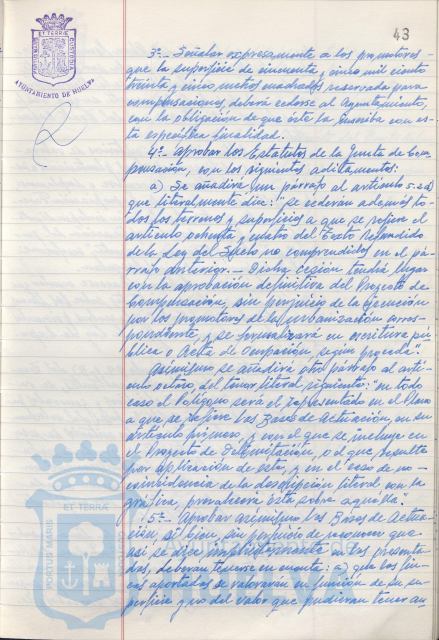 43
PORTUS MARIS
ET TERRÆ
CUSTODIA
AYUNTAMIENTO DE HUELVA
3º.- Señalar expresamente a los promotores
que la superficie de cincuenta y cinco mil ciento
treinta y cinco metros cuadrados reservada para
compensaciones, deberá cederse al Ayuntamiento,
con la obligación de que éste la inscriba con es-
ta específica finalidad.
4º.- Aprobar los Estatutos de la Junta de Com-
pensación, con los siguientes aditamentos:
a) Se añadirá un párrafo al artículo 5-2 d)
que literalmente dice: "se cederán además to-
dos los terrenos y superficies a que se refiere el
artículo ochenta y cuatro del Texto Refundido
de la Ley del Suelo no comprendidos en el pá-
rrafo anterior.- Dicha cesión tendrá lugar
con la aprobación definitiva del Proyecto de
Compensación, sin perjuicio de la ejecución
por los promotores de la urbanización corres-
pondiente, y se formalizará en escritura pú-
blica o Acta de Ocupación, según proceda".
Asimismo se añadirá otro párrafo al artí-
culo octavo, del tenor literal siguiente: "en todo
caso el Polígono será el representado en el Plano
a que se refiere las Bases de Actuación en su
artículo primero, y con el que se incluye en
el Proyecto de Delimitación, o el que resulte
por aplicación de esta, y en el caso de no-
coincidencia de la descripción literal con la
gráfica, prevalecerá ésta sobre aquélla".
5º.- Aprobar asimismo las Bases de Actua-
ción, si bien, sin perjuicio de reconocer que
así se dice en las presenta-
das, deberán tenerse en cuenta: a) que las fin-
cas aportadas se valorarán en función de su su-
perficie y no del valor que pudieran tener an
PORTUS MARIS
ET TERRÆ